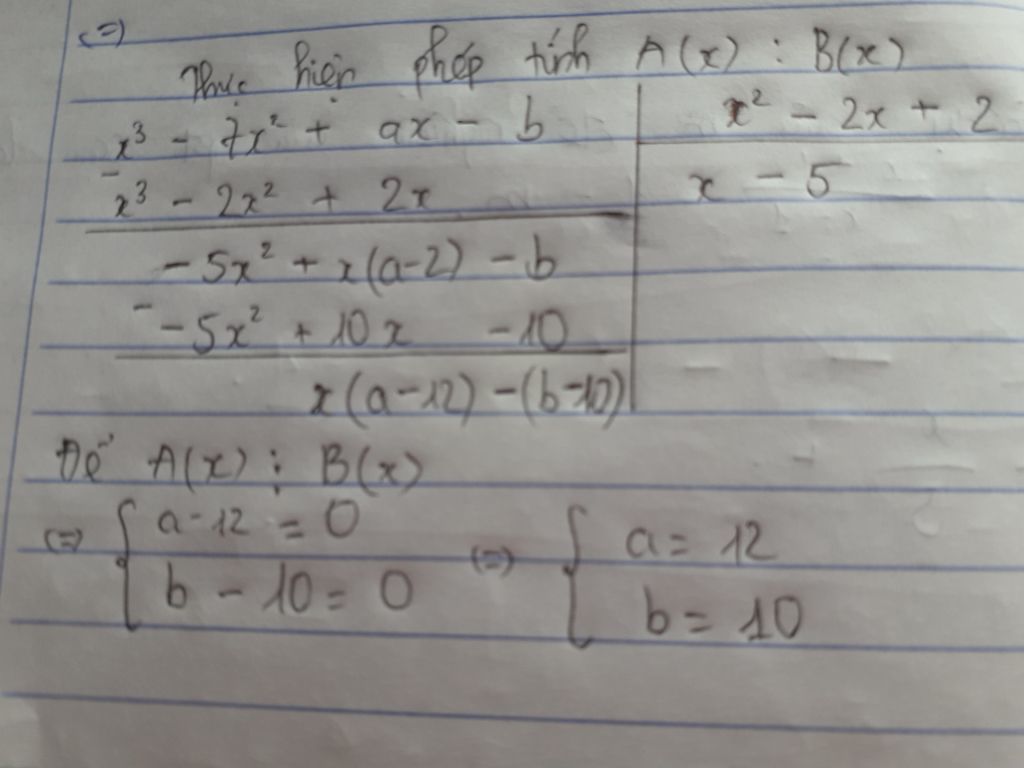 (=)
Thực hiện phép tính A(x) : B(x)
x³ - 7x² + ax - b | x² - 2x + 2
- x³ - 2x² + 2x | x - 5
- 5x² + x(a-2) - b
- - 5x² + 10x - 10
x(a-12) - (b-10)
Để A(x) ⋮ B(x)
(=) { a - 12 = 0 (=) { a = 12
b - 10 = 0 b = 10